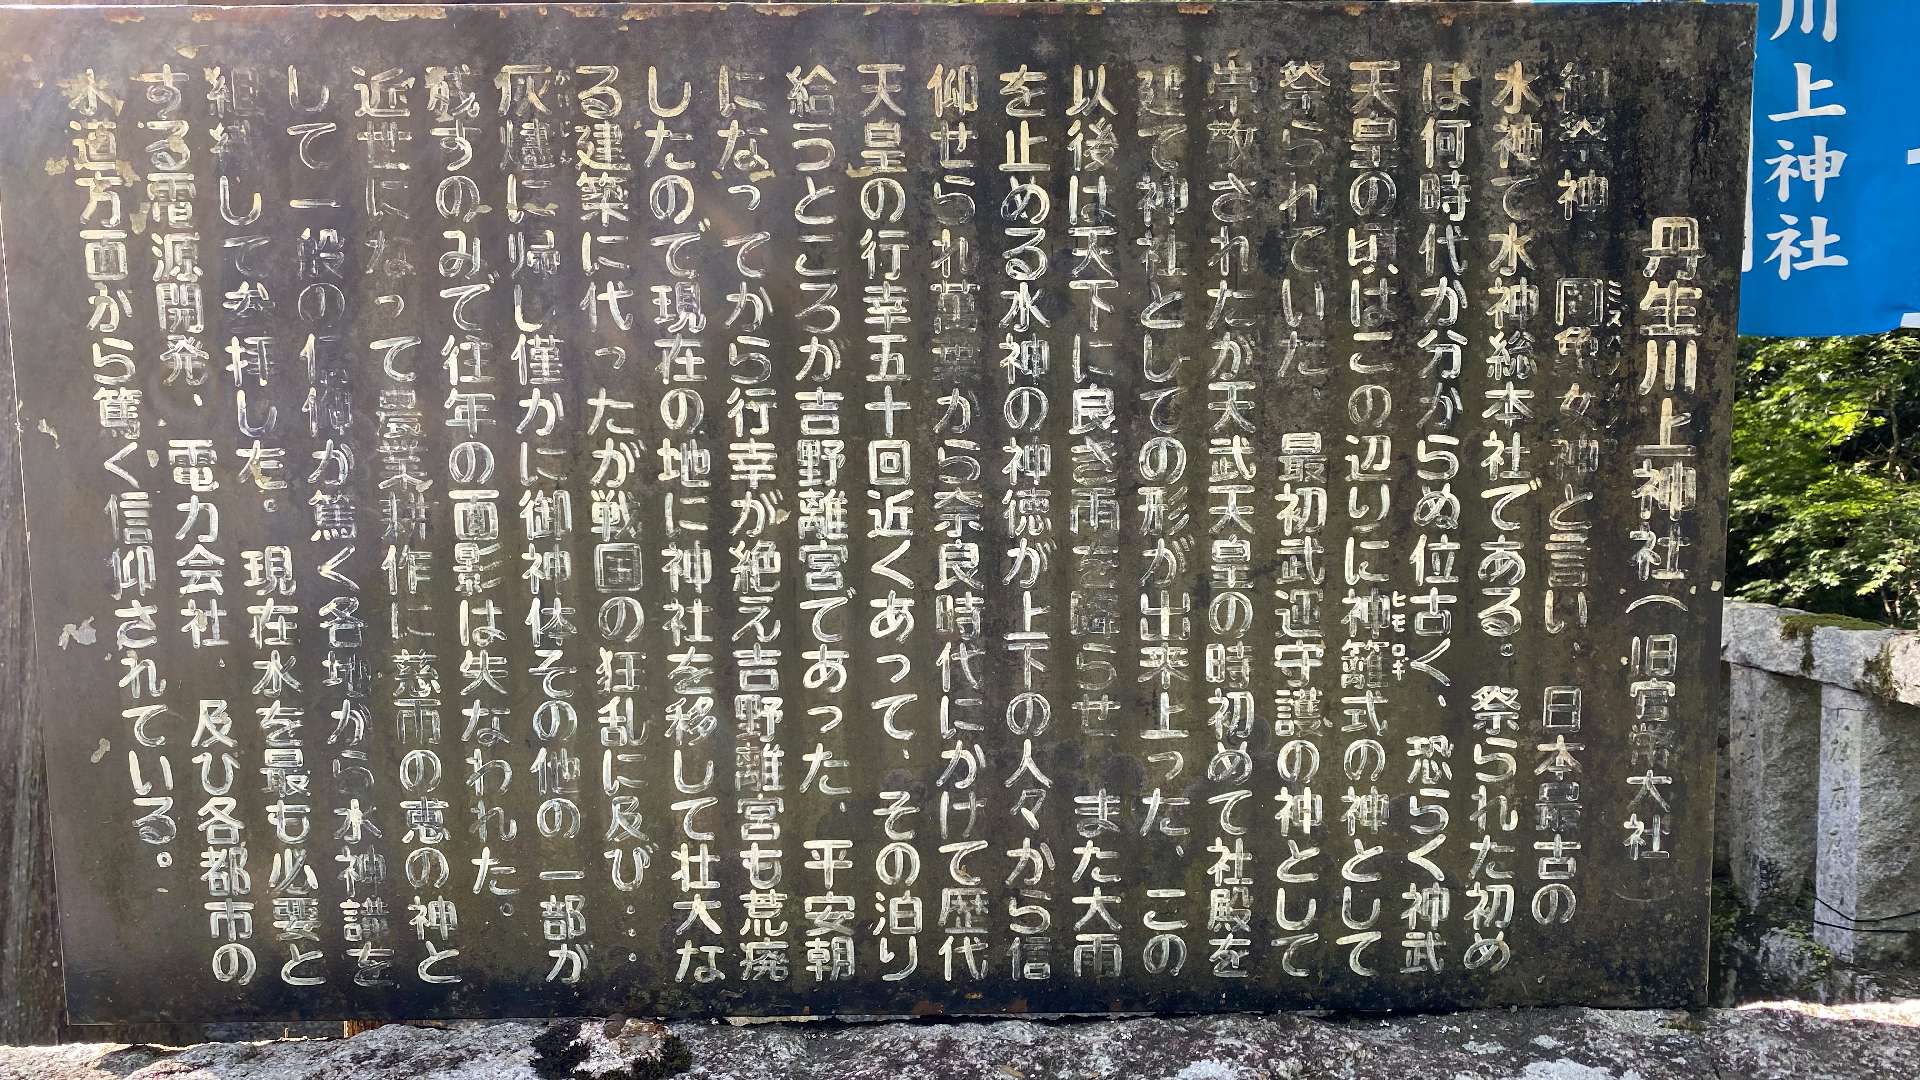 丹生川上神社(旧官幣大社)
御祭神、罔象女神と言い、日本最古の
ミズハノメノ
水神で水神総本社である。祭られた初め
は何時代か分からぬ位古く、恐らく神武
天皇の頃はこの辺りに神籬式の神として
ヒモロギ
祭られていた、最初武運守護の神として
崇敬されたが天武天皇の時初めて社殿を
建て神社としての形が出来上った、この
以後は天下に良き雨を降らせ また大雨
を止める水神の神徳が上下の人々から信
仰せられ 奈良時代にかけて歴代
天皇の行幸五十回近くあって、その泊り
給うところが吉野離宮であった、平安朝
になってから行幸が絶え吉野離宮も荒廃
したので現在の地に神社を移して壮大な
る建築に代ったが戦国の狂乱に及び・・
灰燼に帰し僅かに御神体その他の一部が
残すのみで往年の面影は失なわれた。
近世になって農業耕作に慈雨の恵の神と
して一般の信仰が篤く各地から水神講を
組織して参拝した。現在水を最も必要と
する電源開発、電力会社、及び各都市の
水道方面から篤く信仰されている。
川上神社